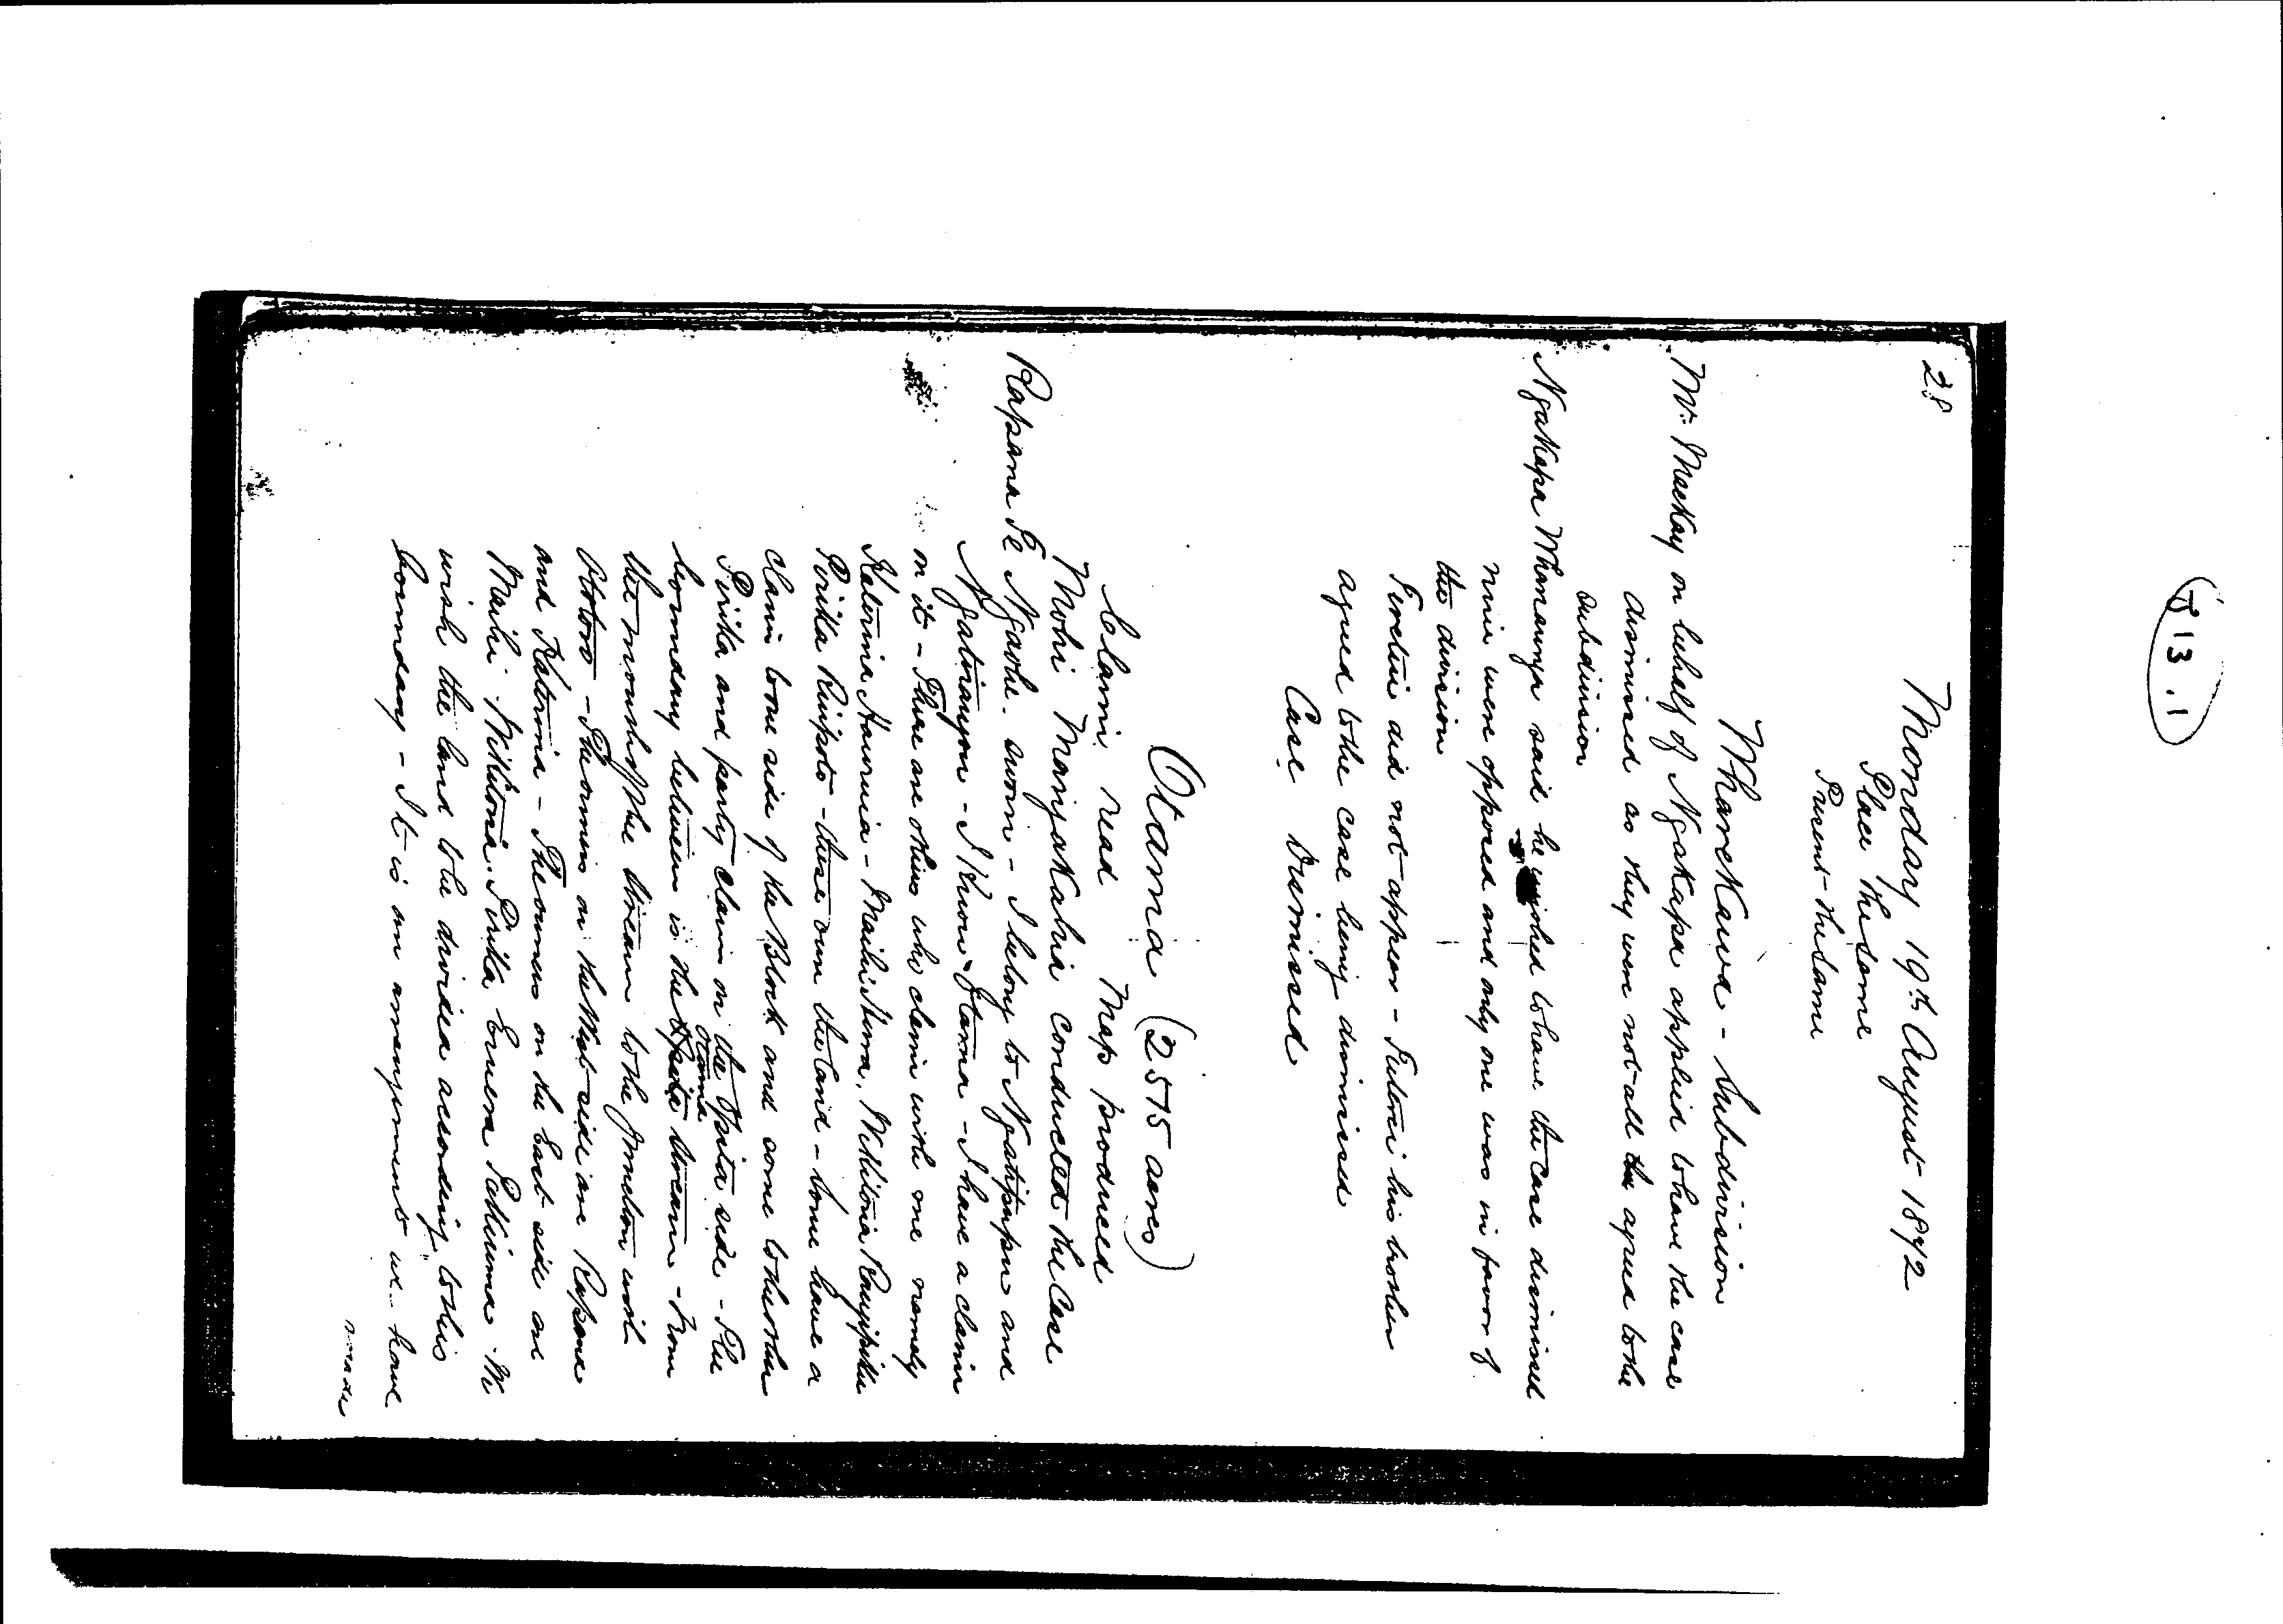 J 13.1
28
Monday 19th August 1872
Place the Same
Present the Same
Wharekawa - Subdivision
Mr. Mackay on behalf of Ngakapa applied to have the case
dismissed as they were not all agreed to the
subdivision
Ngakapa Whanaunga said he wished to have the case dismissed
nine were opposed and only one was in favor of
the division
did not appear - his brother
agreed to the case being dismissed
Case Dismissed
Otama (2575 acres)
Claim read Map produced
Mohi Mangakahia conducted the Case
Rapana Te Ngaohe. sworn - I belong to Ngatipupu and
- I know Otama - I have a claim
on it - There are others who claim with me namely
Katerina Hauruia -
Pirika - these own the land - some have a
claim to one side of the Block and some to the other
Pirika and party claim on the Opita side - The
Otama
boundary between is the Opita stream - From
the mouth of the stream to the Junction with
- The owners on the West side are Rapana
and Katerina - The owners on the East side are
Maihi Wikitoria Pirika Eruera - We
wish the land to be divided according to this
boundary - It is an arrangement we have
made